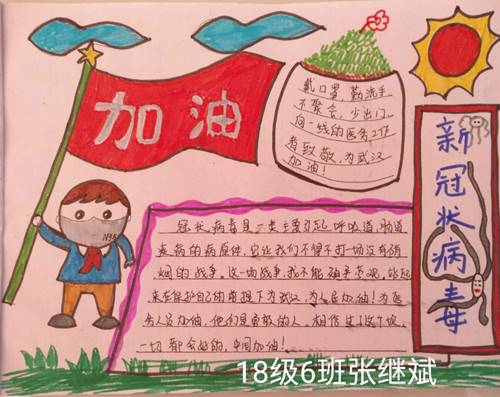 加油
戴口罩，勤洗手
不聚会，少出门
向一线的医务工作
者致敬，为武汉
加油！
新冠状病毒
N95
冠状病毒是一类主要引起呼吸道、肠道
疾病的病原体，它让我们不得不打一场没有硝
烟的战争，这一场战争，我不能袖手旁观，起
来在保护自己的前提下为武汉，为人民加油！为医
务人员加油，他们是勇敢的人，相信这个坡，
一切都会好的，中国加油！
18级6班张继斌